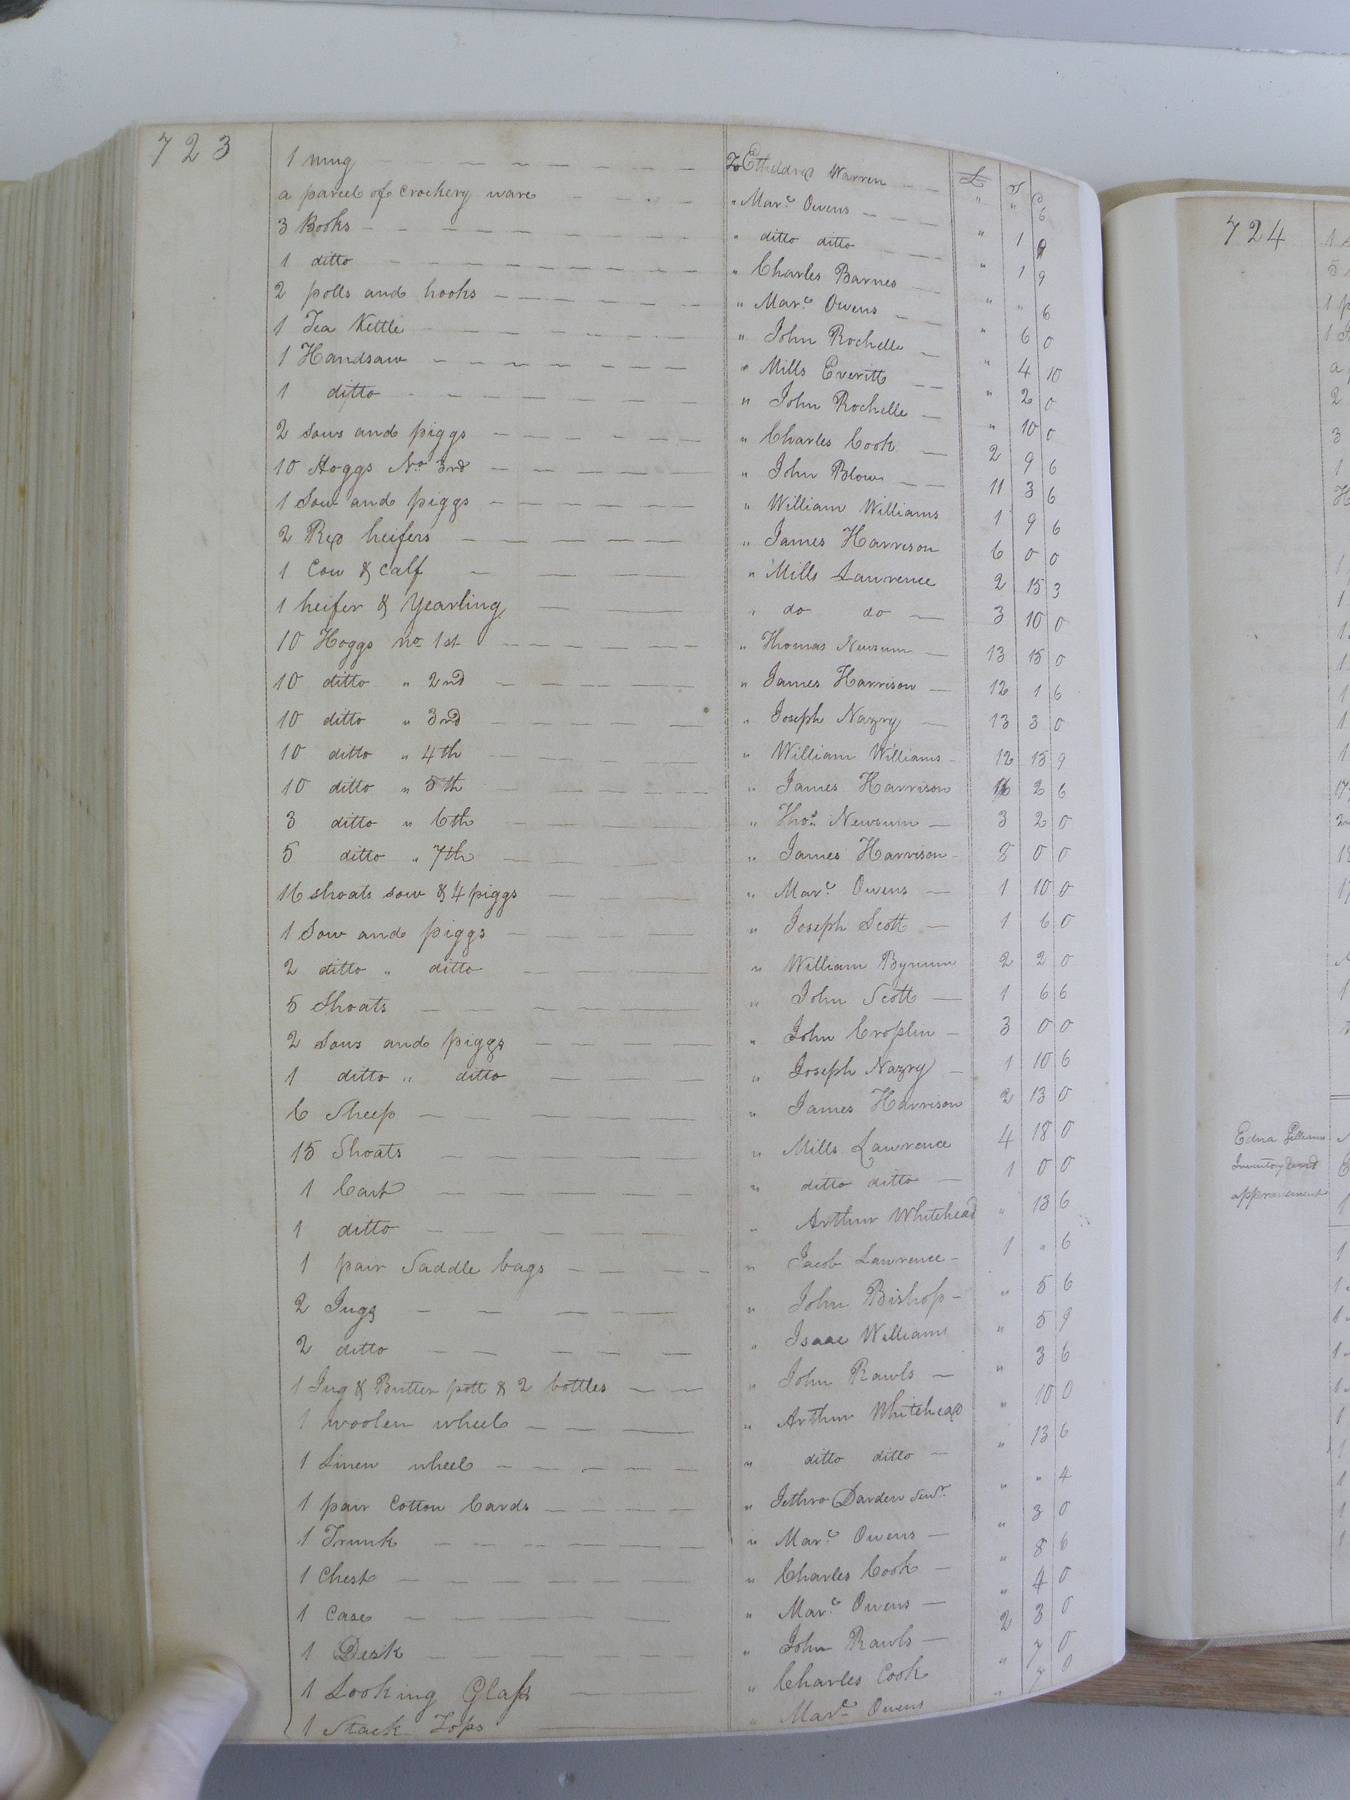 723
1 mug To Etheldred Warren £ s d " " 6
a parcel of Crockery ware " Mar.e Owens " 1 9
3 Books " ditto ditto " 1 9
1 ditto " Charles Barnes " " 6
2 potts and hooks " Mar.e Owens " 6 0
1 Tea Kettle " John Rochelle " 4 10
1 Handsaw " Mills Everitt " 2 0
1 ditto " John Rochelle " 10 0
2 sows and piggs " Charles Cook 2 9 6
10 Hoggs No 3rd " John Blow 11 3 6
1 Sow and piggs " William Williams 1 9 6
2 Red heifers " James Harrison 6 0 0
1 Cow & calf " Mills Lawrence 2 15 3
1 heifer & Yearling " do do 3 10 0
10 Hoggs no 1st " Thomas Newsum 13 15 0
10 ditto " 2nd " James Harrison 12 1 6
10 ditto " 3rd " Joseph Nazry 13 3 0
10 ditto " 4th " William Williams 12 15 9
10 ditto " 5th " James Harrison 2 6
3 ditto " 6th " Thos Newsum 3 2 0
5 ditto " 7th " James Harrison 8 0 0
16 shoats sow & 4 piggs " Mar.e Owens 1 10 0
1 Sow and piggs " Joseph Scott 1 6 0
2 ditto " ditto " William Bynum 2 2 0
5 Shoats " John Scott 1 6 6
2 Sows and piggs " John 3 0 0
1 ditto " ditto " Joseph Nazry 1 10 6
6 Sheep " James Harrison 2 13 0
15 Shoats " Mills Lawrence 4 18 0
1 Cart " ditto ditto 1 0 0
1 ditto " Arthur Whitehead " 13 6
1 pair Saddle bags " Jacob Lawrence 1 " 6
2 Jugs " John Bishop " 5 6
2 ditto " Isaac Williams " 5 9
1 Jug & Butter pott & 2 bottles " John Rawls " 3 6
1 woolen wheel " Arthur Whitehead " 10 0
1 Linen wheel " ditto ditto " 13 6
1 pair Cotton Cards " Jethro Darden Senr. " " 4
1 Trunk " Mar.e Owens " 3 0
1 Chest " Charles Cook " 8 6
1 Case " Mar.e Owens " 4 0
1 Desk " John Rawls 2 3 0
1 Looking Glass " Charles Cook " 7 0
1 Stack Tops " Mar.e Owens "
724
Edna
Inventory and
appraisement